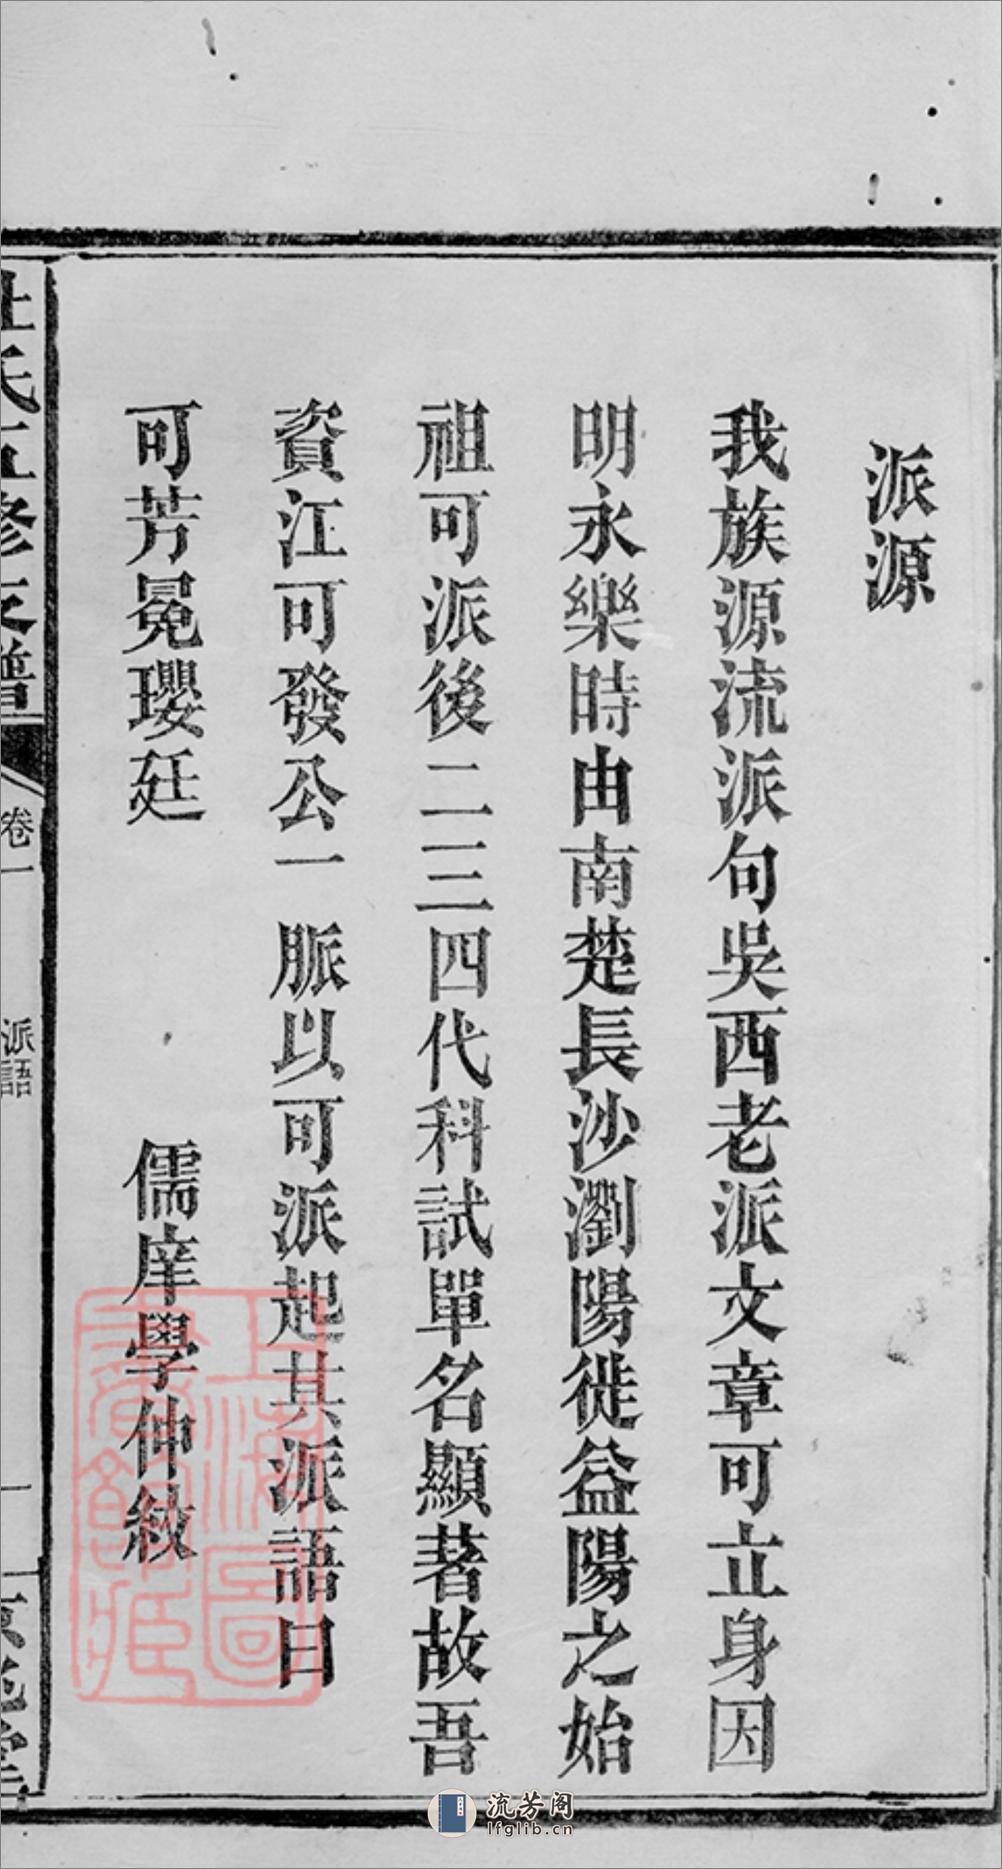 派源
我族源流派句吳西老派文章可立身因
明永樂時由南楚長沙瀏陽徙益陽之始
祖可派後二三四代科試單名顯著故吾
資江可發公一脈以可派起其派語曰
可芳冕瓔廷 儒庠學仲紋
氏五修支譜
卷一
派語
一
上海圖書館藏
流芳阁
lfglib.cn